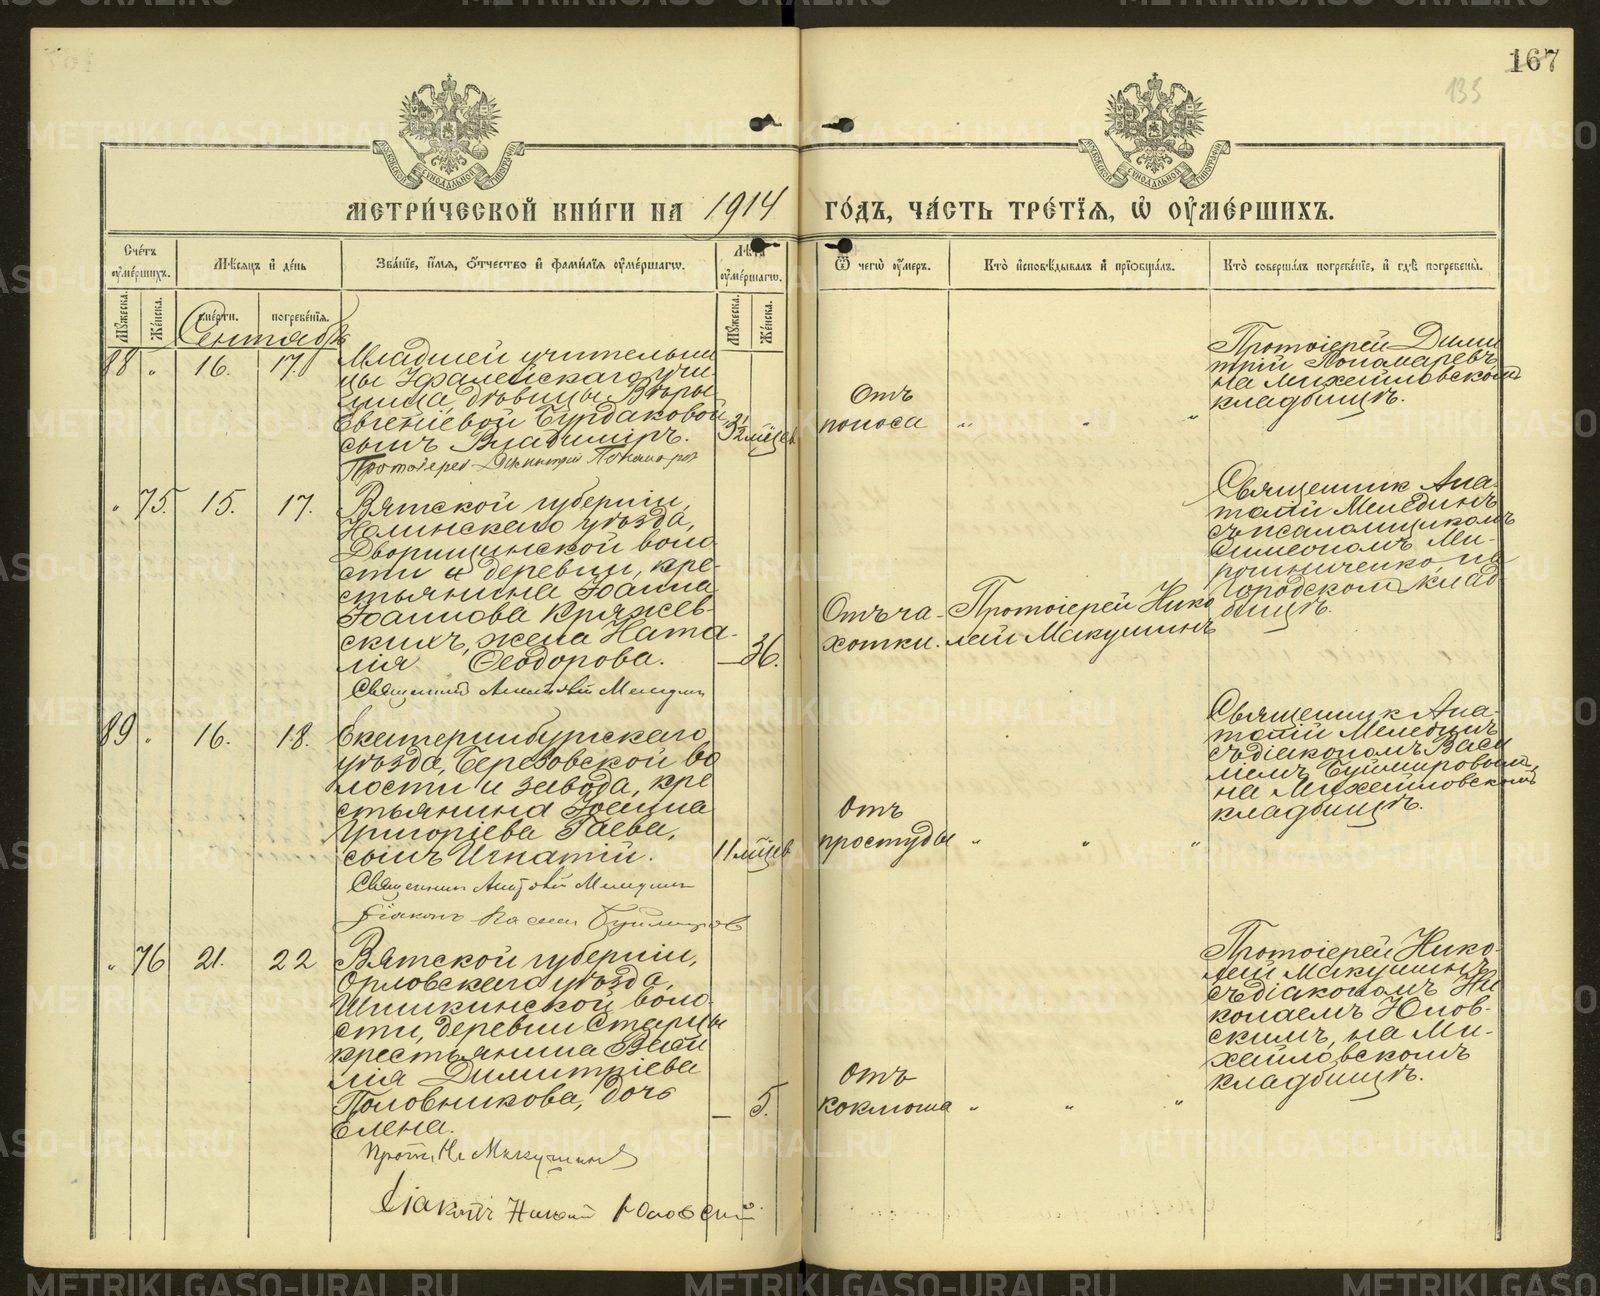 167
135
МЕТРИ́ЧЕСКОЙ КНИ́ГИ НА 1914 ГО́ДЪ, ЧА́СТЬ ТРЕ́ТЇѦ, Ѡ҆ ОУ҆МЕ́РШИХЪ.
Сче́тъ оу҆ме́ршихъ.
Мѣ́сяцъ и҆ де́нь
Зва́нїе, и҆́мѧ, ѻ҆́тчество и҆ фами́лїѧ оу҆ме́ршагѡ.
Лѣ́та оу҆ме́ршагѡ.
Ѿ чегѡ̀ оу҆́меръ.
Кто̀ и҆сповѣ́дывалъ и҆ прїѡбща́лъ.
Кто̀ соверша́лъ погребе́нїе, и҆ гдѣ̀ погребены̀.
Мꙋ́жеска.
Же́нска.
сме́рти.
погребе́нїѧ.
Мꙋ́жеска.
Же́нска.
Сентябрь
88 " 16. 17.
Младшей учительни
цы Уфалейскаго учи
лища, дѣвицы Вѣры
Евгеніевой Бурдаковой
сынъ Владиміръ.
Протоіерей Димитрій Пономаревъ
3½ мѣсец
Отъ
поноса
" " "
Протоіерей Дими
трій Пономаревъ
на Михайловскомъ
кладбищѣ.
" 75. 15. 17.
Вятской губерніи,
Нолинскаго уѣзда,
Дворищинской воло
сти и деревни, кре-
стьянина Іоанна
Іоаннова Кряжев-
скихъ, жена Ната-
лія Ѳеодорова.
Священникъ Анатолій Мелединъ
— 36.
Отъ ча-
хотки.
Протоіерей Нико
лай Макушинъ
Священник Ана-
толій Мелединъ
съ псаломщикомъ
Симеономъ Ми-
рошниченко, на
городском клад-
бищѣ.
89 " 16. 18.
Екатеринбургскаго
уѣзда, Березовской во
лости и завода, кре
стьянина Іоанна
Григоріева Гаева,
сынъ Игнатій.
Священникъ Анатолій Мелединъ
Діаконъ Василій Буймировъ
11 мѣсцев
Отъ
простуды
" " "
Священник Ана-
толій Мелединъ
съ діакономъ Васи
ліемъ Буймировым,
на Михайловскомъ
кладбищѣ.
" 76 21. 22
Вятской губерніи,
Орловскаго уѣзда,
Шишкинской воло-
сти, деревни Старцы
крестьянина Васи
лія Димитріева
Половникова, дочь
Елена.
Прот. Н. Макушинъ
Діаконъ Николай Юновскій
— 5.
Отъ
коклюша
" " "
Протоіерей Нико-
лай Макушинъ
съ діакономъ Ни
колаемъ Юнов-
скимъ, на Ми-
хайловскомъ
кладбищѣ.
METRIKI.GASO-URAL.RU